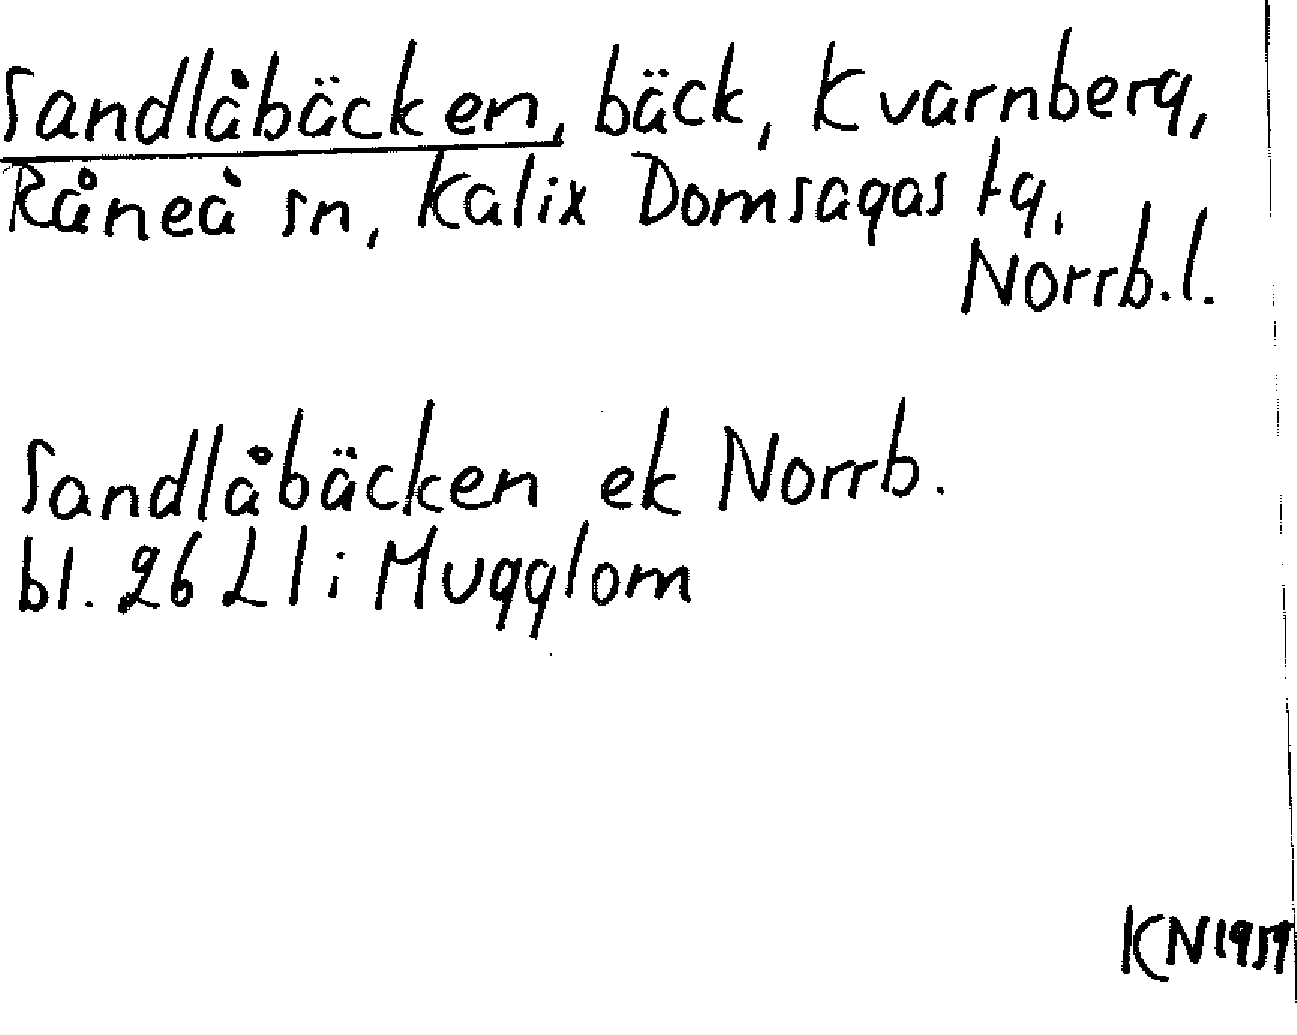 Sandlåbäcken, bäck, Kvarnberg,
Råneå sn, Kalix Domsagas tg,
Norrb.l.
Sandlåbäcken ek Norrb.
bl. 26 L l i Mugglom
KN 1959